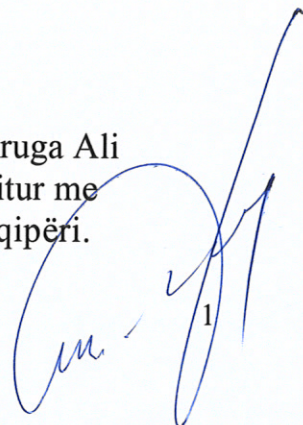 ruga Ali
itur me
qipëri.
1